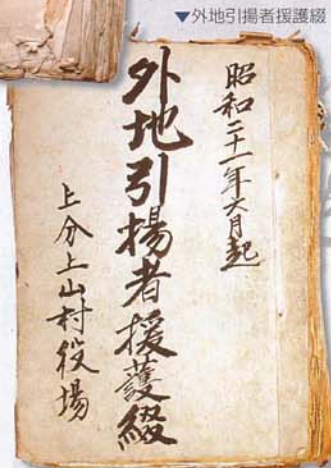 ▼外地引揚者援護綴
昭和二十一年六月起
外地引揚者援護綴
上分上山村役場